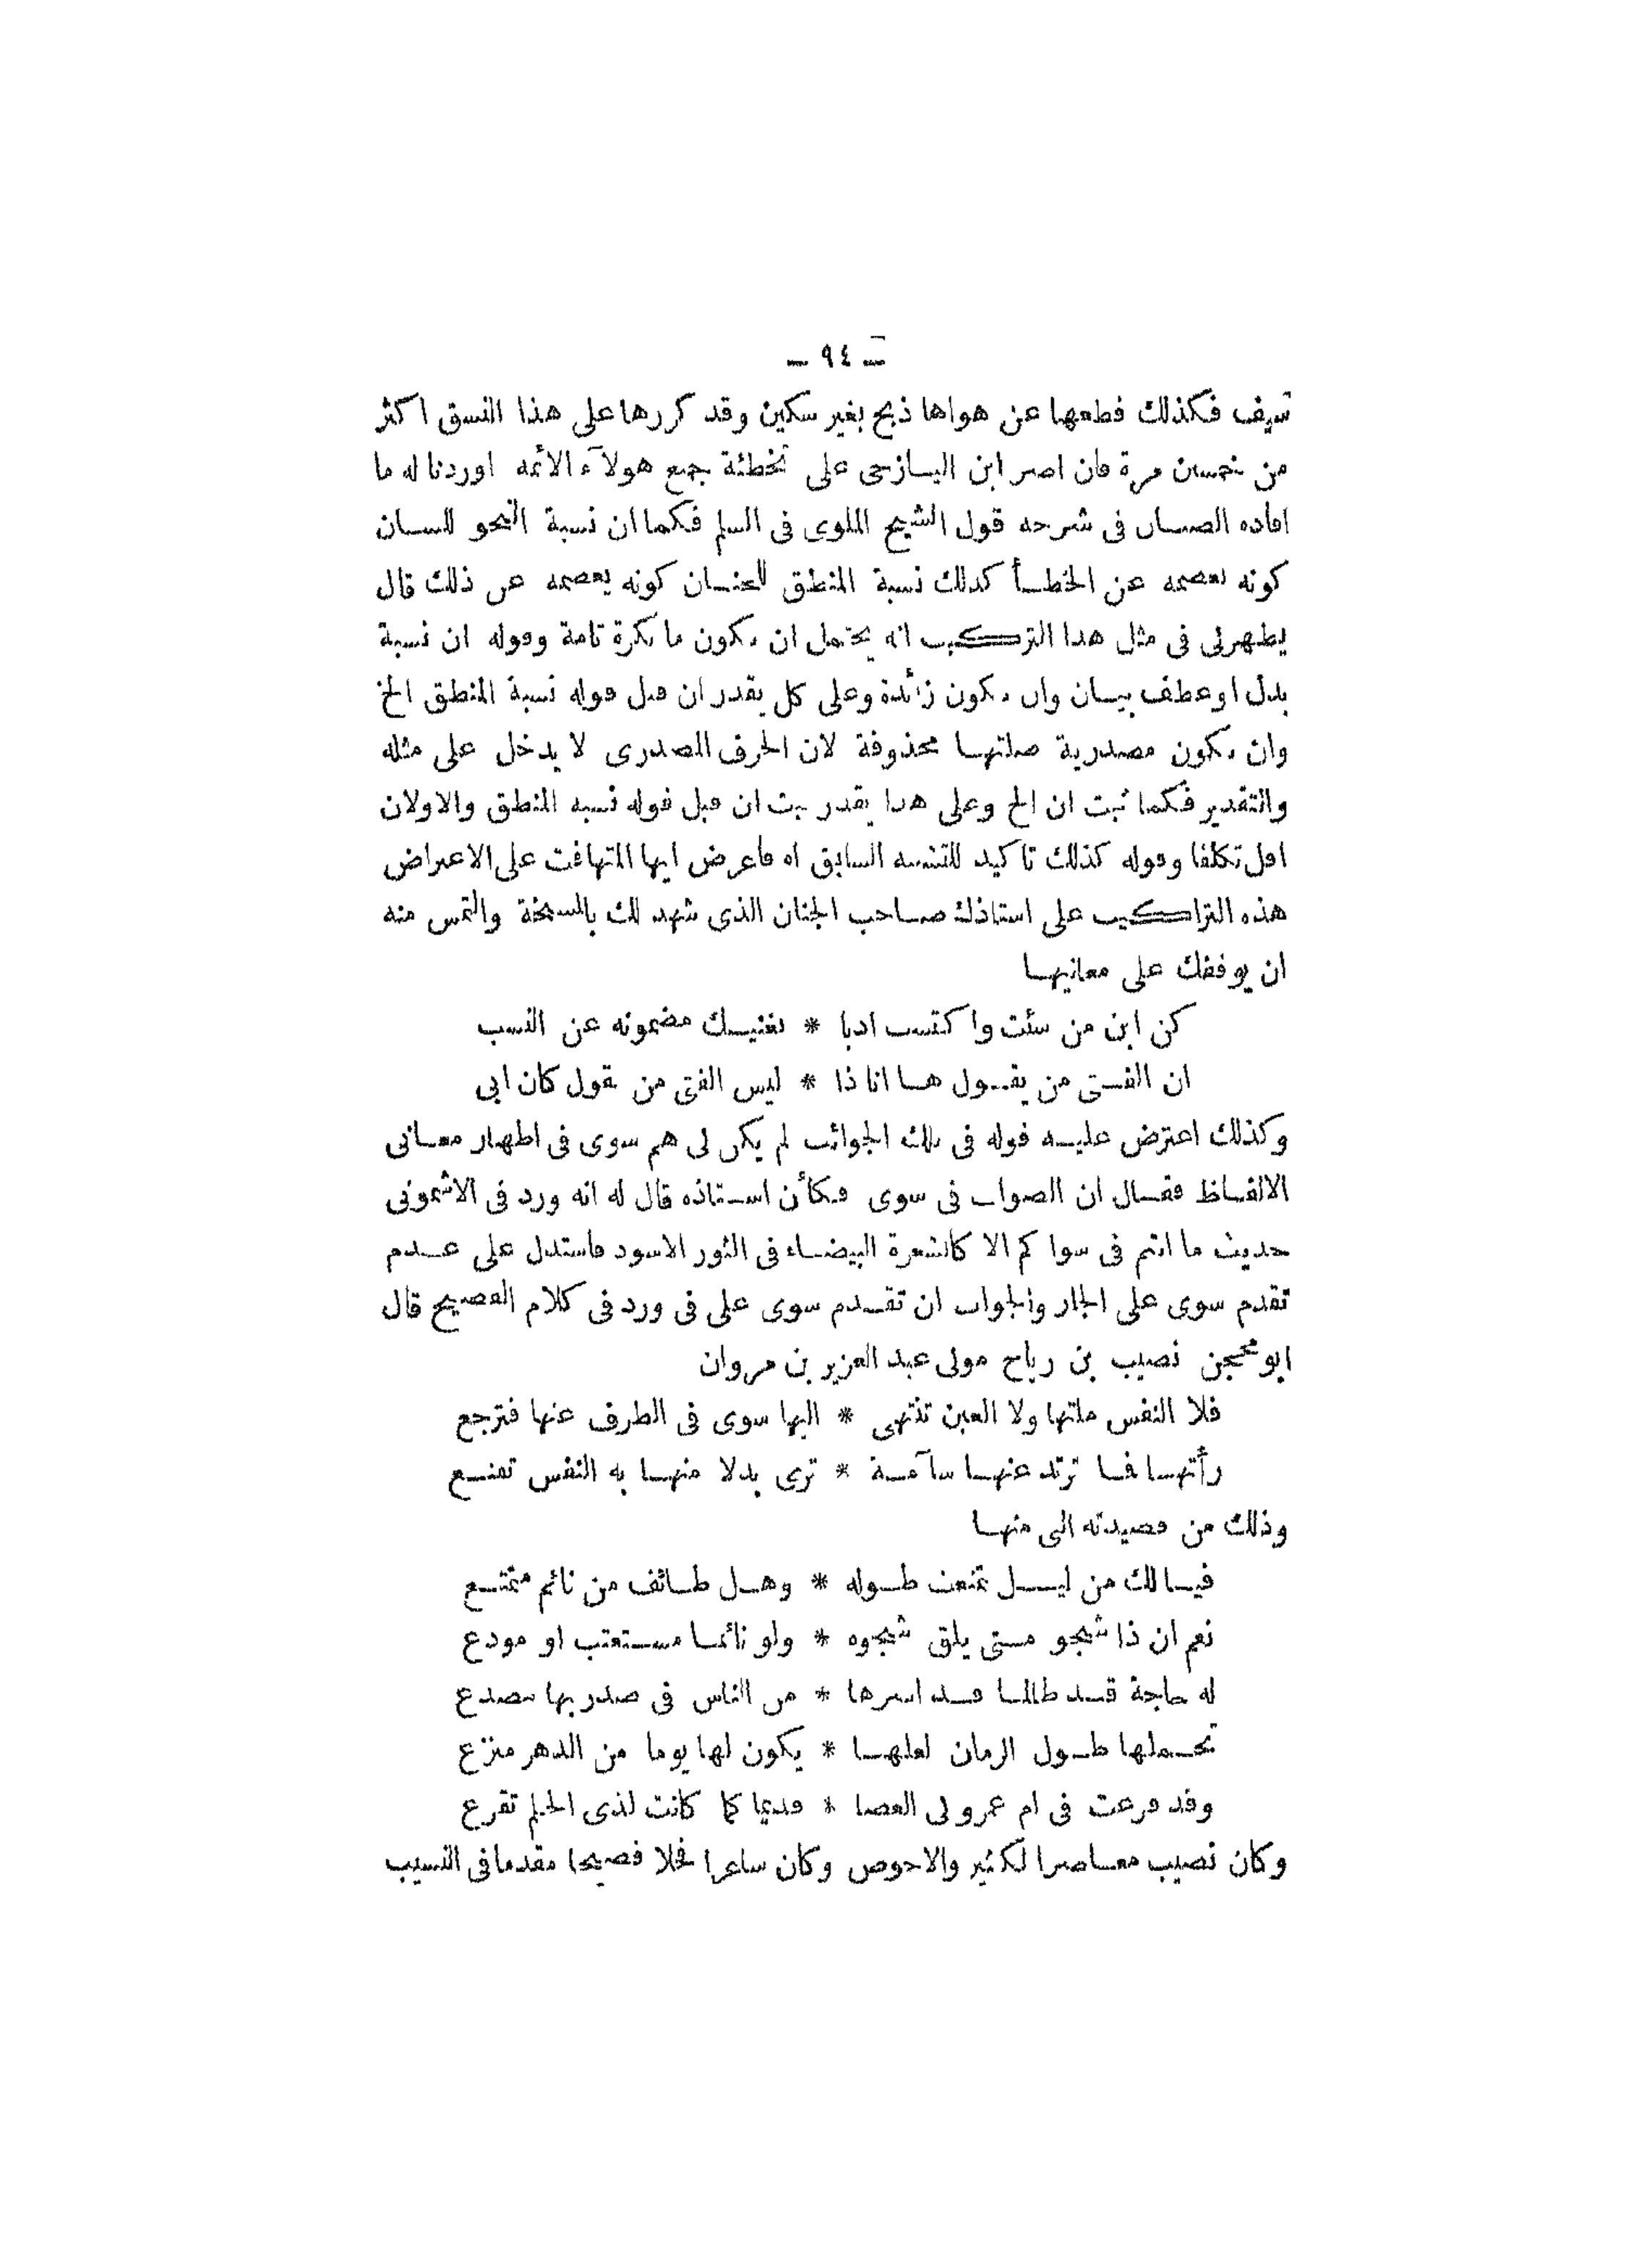 — ٩٤ —
سيف فكذلك قطعها عن هواها ذبح بغير سكين وقد كررها على هذا النسق اكثر
من خمسين مرة فان اصر ابن اليازجى على تخطئة جميع هولآء الائمه اوردنا له ما
افاده الصبان فى شرحه قول الشيخ الملوى فى السلم فكما ان نسبة النحو للسان
كونه يعصمه عن الخطأ كذلك نسبة المنطق للجنان كونه يعصمه عن ذلك قال
يظهرلى فى مثل هذا التركيب انه يحتمل ان يكون ما نكرة تامة وقوله ان نسبة
بدل او عطف بيان وان يكون زائدة وعلى كل يقدر ان قبل قوله نسبة المنطق الخ
وان يكون مصدرية صلتها محذوفة لان الحرف المصدرى لا يدخل على مثله
والتقدير فكما ثبت ان الخ وعلى هذا يقدر ثبت ان قبل قوله نسبه المنطق والاولان
اقل تكلفا وقوله كذلك تاكيد للتشبيه السابق اه فاعرض ايها المتهافت على الاعتراض
هذه التراكيب على استاذك صاحب الجنان الذى شهد لك بالسمخة والتمس منه
ان يوقفك على معانيها
كن ابن من شئت واكتسب ادبا * يغنيك مضمونه عن النسب
ان الفتى من يقول ها انا ذا * ليس الفتى من يقول كان ابى
وكذلك اعترض عليه قوله فى تلك الجوائب لم يكن لى هم سوى فى اظهار معانى
الالفاظ فقال ان الصواب فى سوى فكأن استاذه قال له انه ورد فى الاشمونى
حديث ما انتم فى سواكم الا كالشعرة البيضاء فى الثور الاسود فاستدل على عدم
تقدم سوى على الجار والجواب ان تقدم سوى على فى ورد فى كلام الفصيح قال
ابو محجن نصيب بن رباح مولى عبد العزيز بن مروان
فلا النفس ملتها ولا العين تنتهى * اليها سوى فى الطرف عنها فترجع
رأتها فما ترتد عنها سآمة * ترى بدلا منها به النفس تقنع
وذلك من قصيدته التى منها
فيا لك من ليل تمتعت طوله * وهل طائف من نائم متمتع
نعم ان ذا شجو متى يلق شجوه * ولو نائما مستعتب او مودع
له حاجة قد طالما قد اسرها * من الناس فى صدر بها يتصدع
تحملها طول الزمان لعلها * يكون لها يوما من الدهر منزع
وقد قرعت فى ام عمرو لى العصا * قديما كما كانت لذى الحلم تقرع
وكان نصيب معاصرا لكثير والاحوص وكان شاعرا فحلا فصيحا مقدما فى النسيب